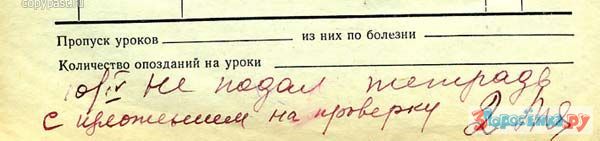 copypast.ru
Пропуск уроков из них по болезни
Количество опозданий на уроки
10/IV Не подал тетрадь
с изложением на проверку 2